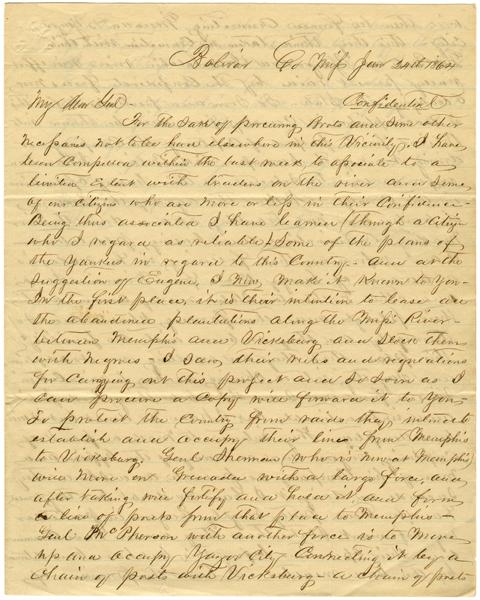 Bolivar Co Miss Jan 24th 1864
My Dear Genl - Confidential
For the Sake of procuring Boots and Some other
necessaries not to be had elsewhere in this Vicinity, I have
been Compelled within the last week to associate to a
limited Extent with traders on the river and Some
of our citizens who are more or less in their Confidence -
Being thus associated I have learned (through a Citizen
who I regard as reliable) Some of the plans of
the Yankees in regard to this Country - and at the
Suggestion of Eugene, I now, make it Known to You -
In the first place, it is their intention to lease all
the abandoned plantations along the Miss River -
between Memphis and Vicksburg and Stock them
with Negroes - I saw their rules and regulations
for Carrying out this project and So Soon as I
can procure a Copy will forward it to You -
To protect the Country from raids they intend to
establish and occupy their line from Memphis
to Vicksburg. Genl Sherman (who is now at Memphis)
will move on Grenada with a large force, and
after taking will fortify and hold it, and form
a line of posts from that place to Memphis -
Genl McPherson with another force is to move
up and occupy Yazoo City Connecting it by a
Chain of posts with Vicksburg - a chain of posts